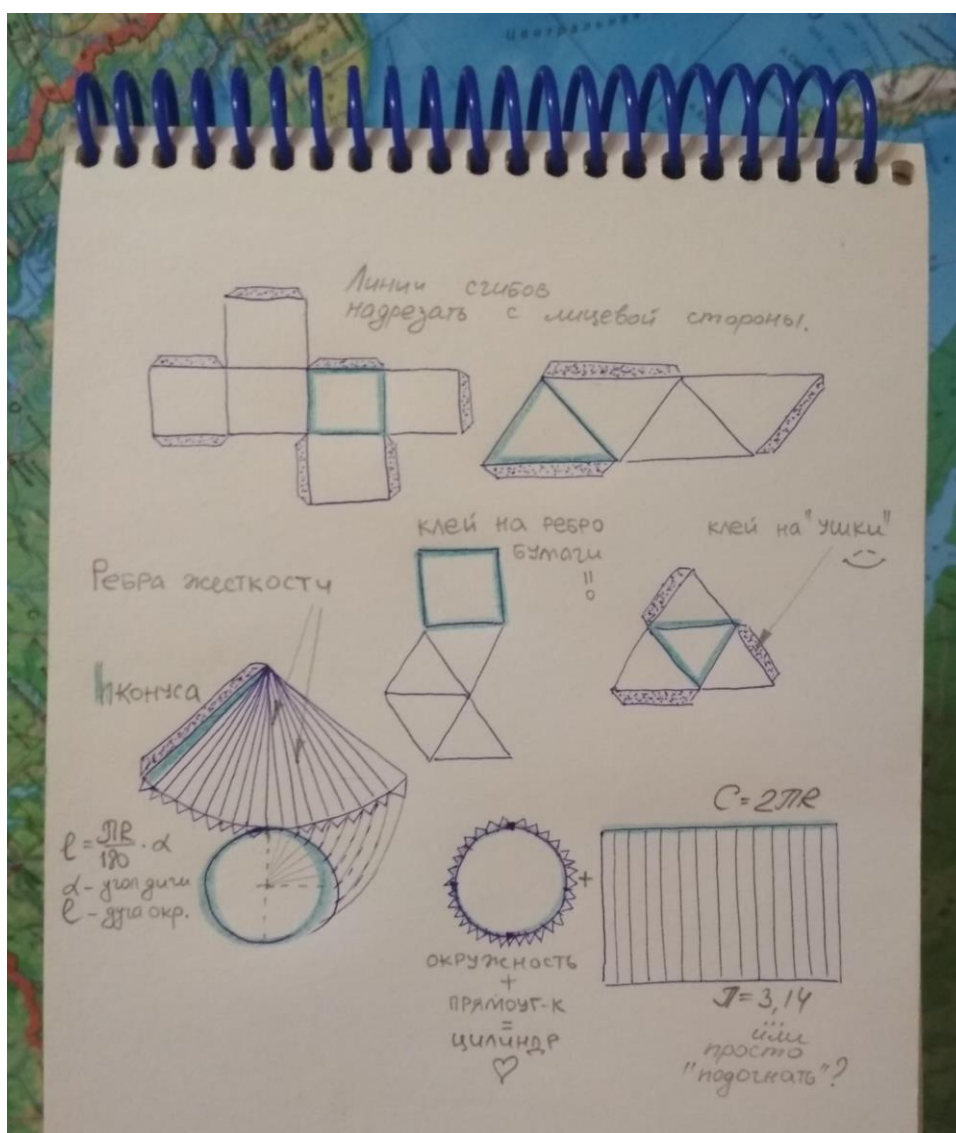 Центральная
Линии сгибов
надрезать с лицевой стороны.
клей на ребро
бумаги
!!
клей на "ушки"
Ребра жесткости
h конуса
C=2ПR
l=ПR/180·α
α-угол дуги
l-дуга окр.
+
окружность
+
прямоуг-к
=
цилиндр
П=3,14
...
или
просто
"подогнать"?